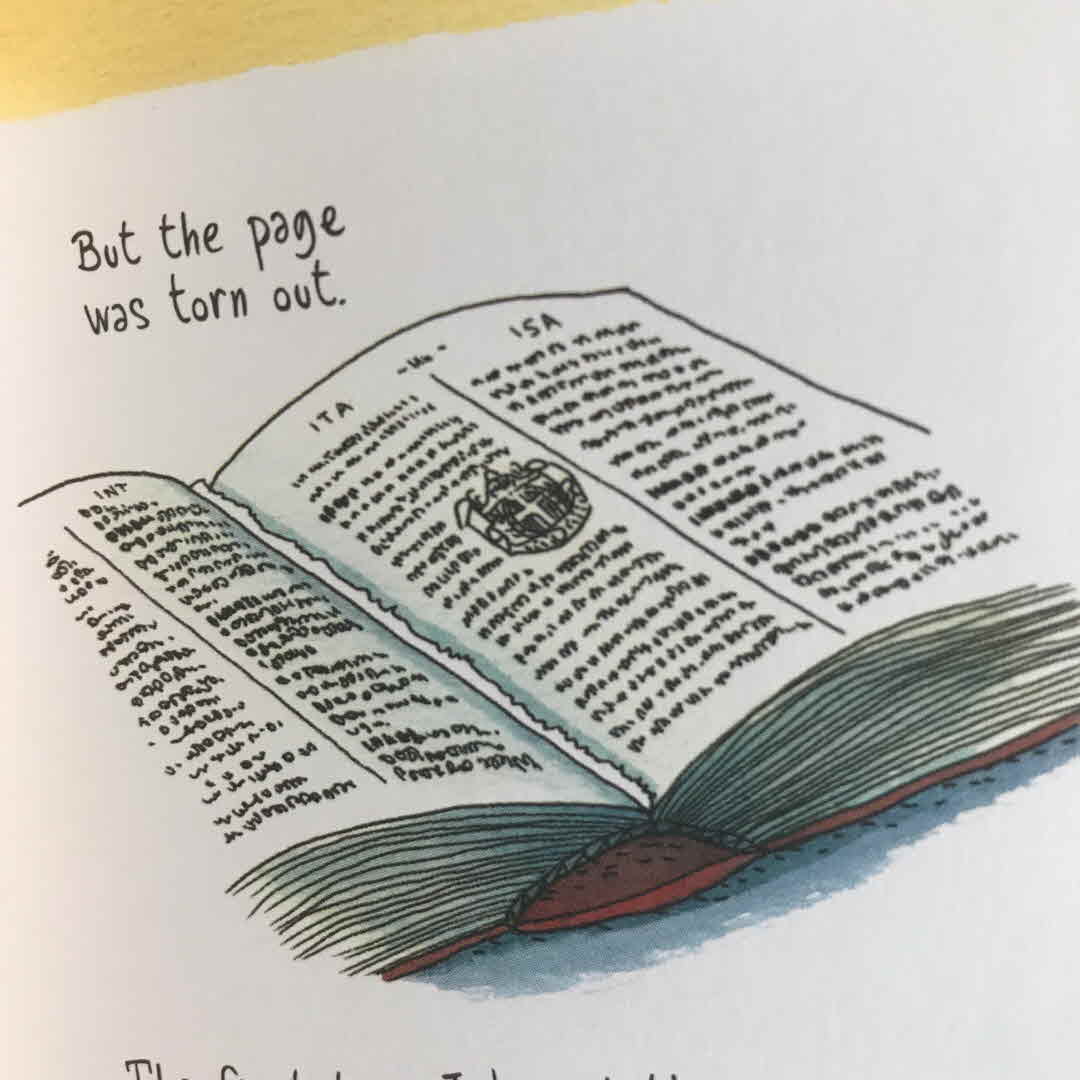 But the page
was torn out.
INT
ITA
ISA